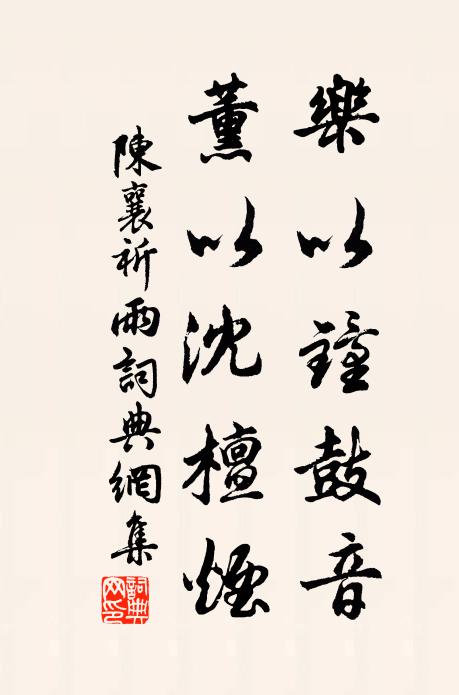 樂以鐘鼓音
薰以沈檀煙
陳襄祈雨詞典網集
詞典網印